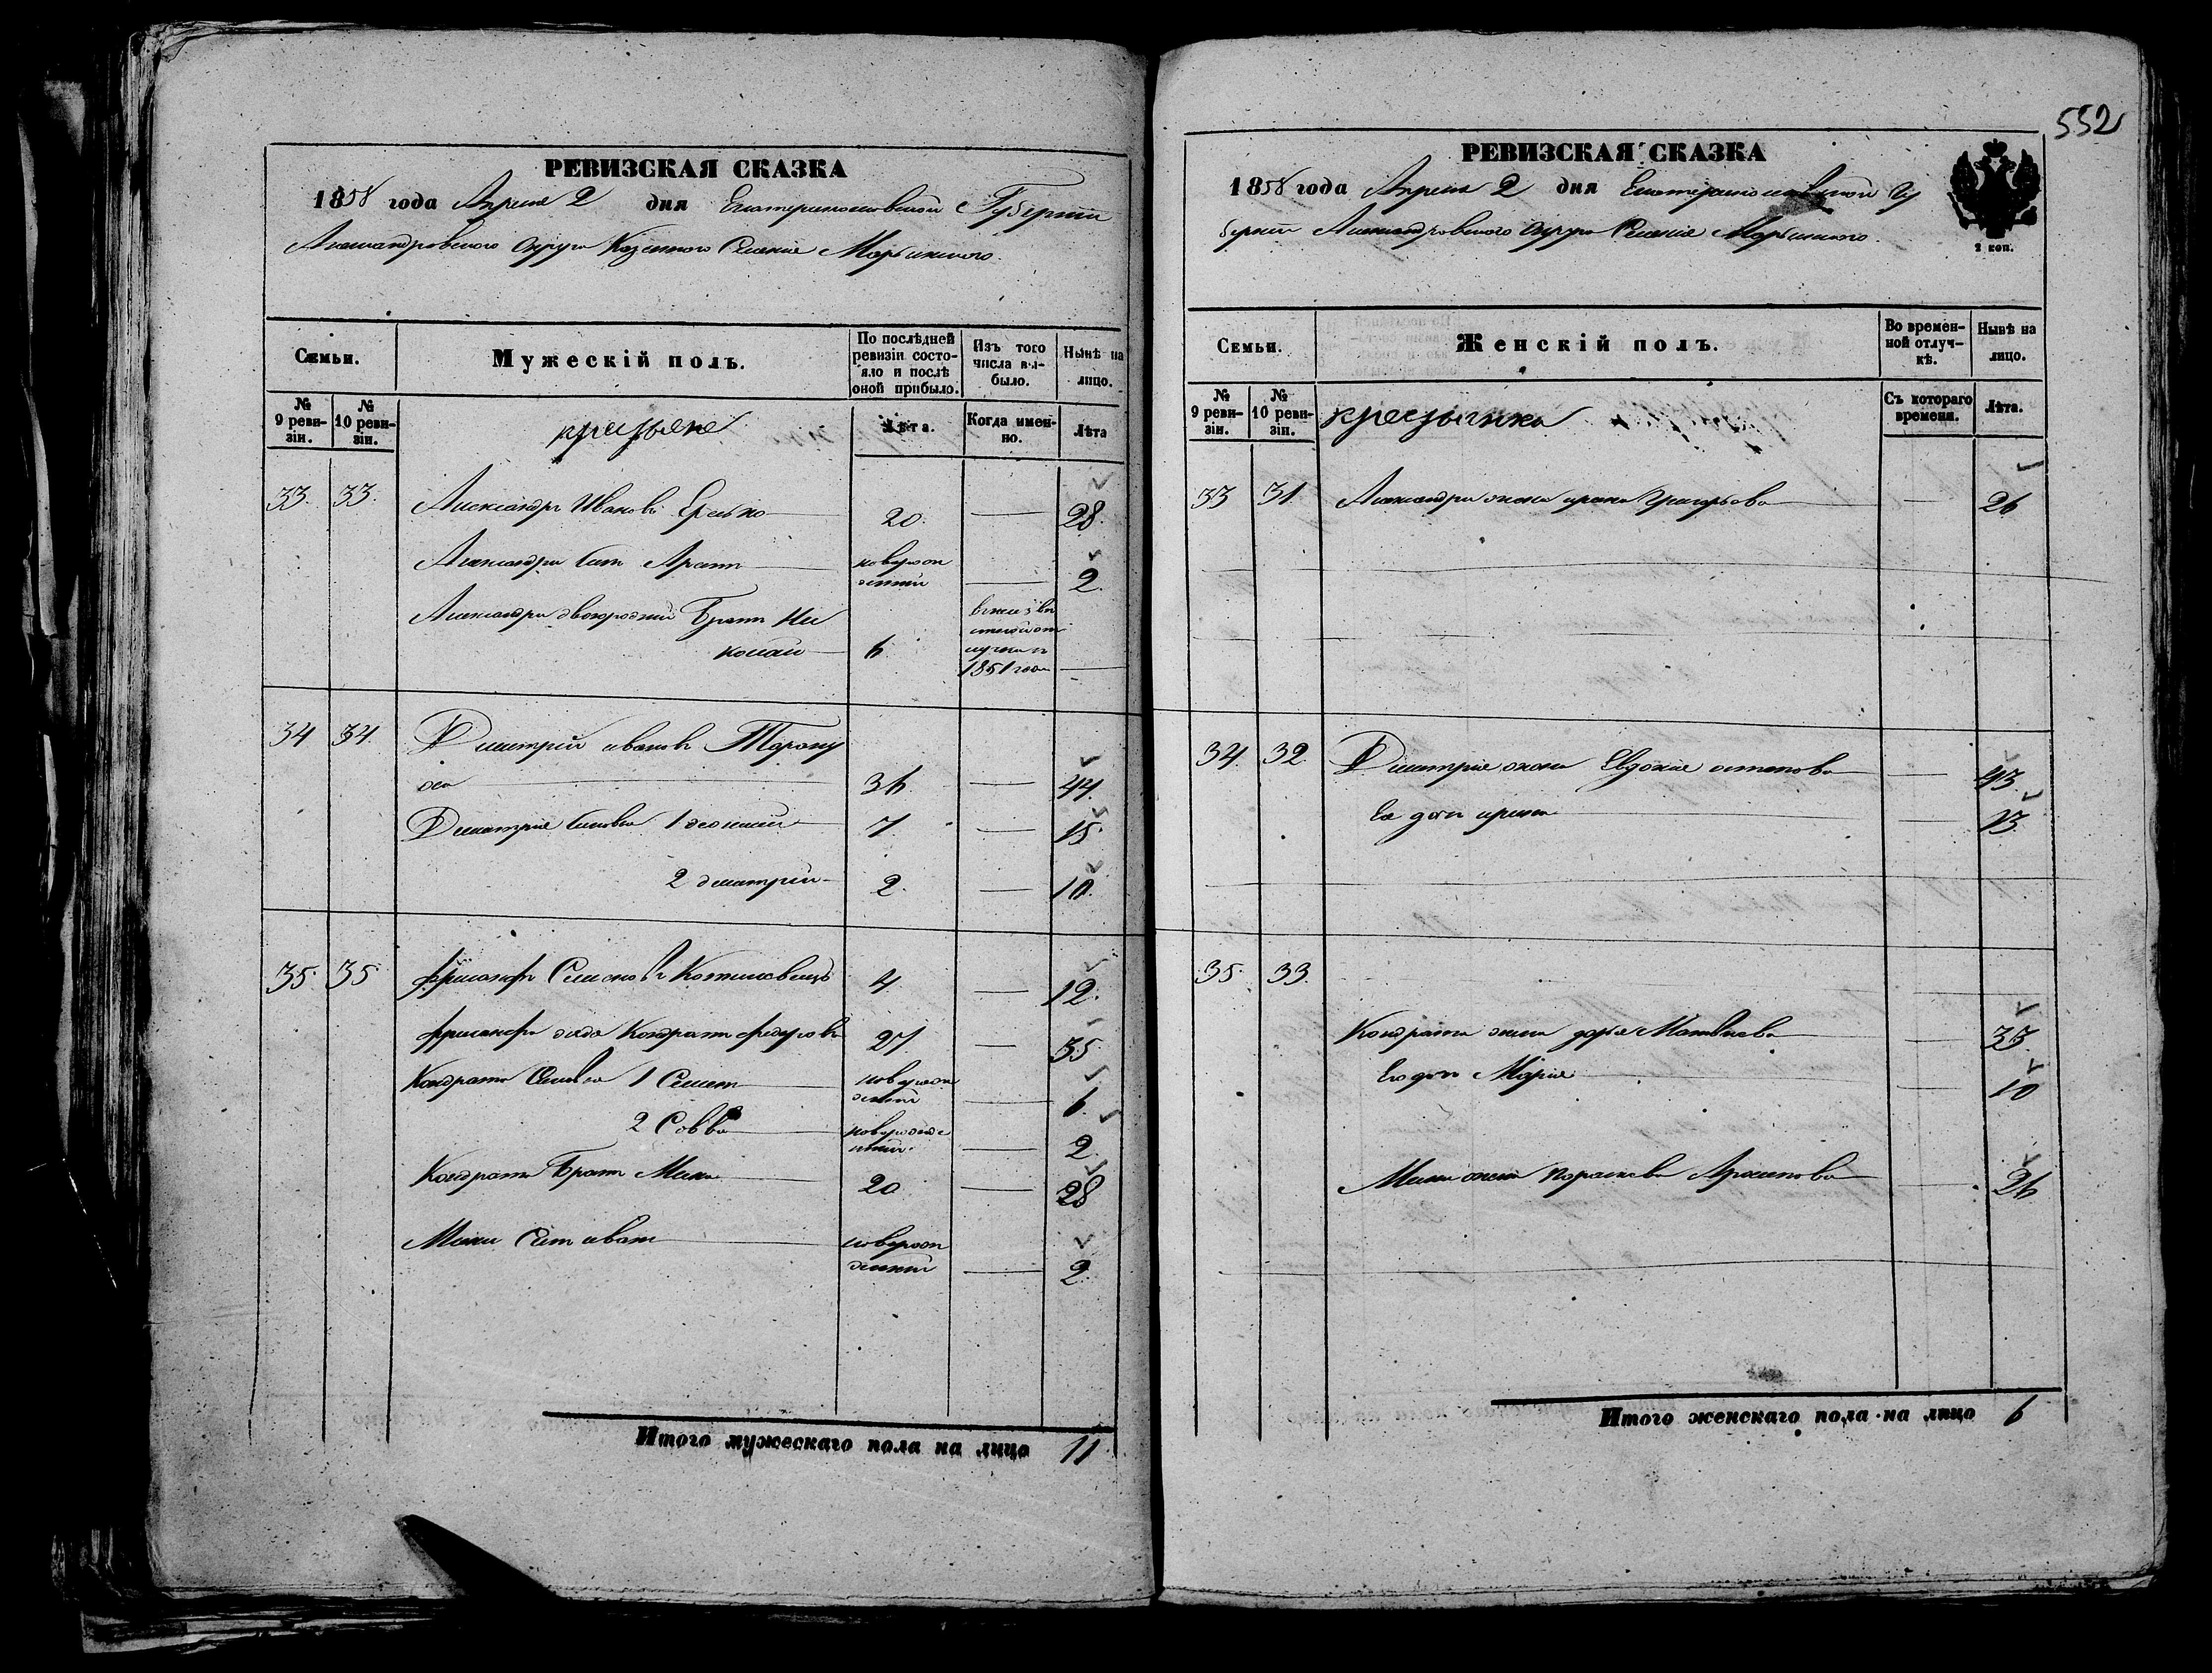 552
РЕВИЗСКАЯ СКАЗКА
1858 года Апреля 2 дня Екатеринославской Губернии
Александровского Округа Казенного Селенія Марьинского.
Семьи.
Мужескій полъ.
По послѣдней ревизіи состояло и послѣ оной прибыло.
Изъ того числа выбыло.
Нынѣ на лицо.
№ 9 ревизіи.
№ 10 ревизіи.
Лѣта.
Когда именно.
Лѣта
33. 33. Александръ Ивановъ 20. 28.
Александра Сынъ новорожденный 2.
Александра двоюродный Братъ Ни
колай 6 1851 года
34 34. Дмитрій Ивановъ
36. 44.
Дмитрія Сыновья 1 7 15.
2 Дмитрій 2. 10.
35. 35 Семеновъ 4 12.
дядя Кондратъ Федоровъ 27 35.
Кондрата Сыновья 1 Семенъ новорожденный 6.
2 Савва новорожденный. 2
Кондрата Братъ Мина 20 28
Мины Сынъ Иванъ новорожденный 2.
Итого мужескаго пола на лицо 11
РЕВИЗСКАЯ СКАЗКА
1858 года Апреля 2 дня Екатеринославской Гу
берніи Александровского Округа Селенія Марьинского.
2 коп.
Семьи.
Женскій полъ.
Во временной отлучкѣ.
Нынѣ на лицо.
№ 9 ревизіи.
№ 10 ревизіи.
Съ котораго времени.
Лѣта.
33 31. Александра жена Григорьева 26
34. 32. Дмитрія жена Евдокія 43.
Ея дочь 13
35. 33.
Кондрата жена Дарья Матвѣева 33
Его дочь Марія 10
Мины жена 26
Итого женскаго пола на лицо 6